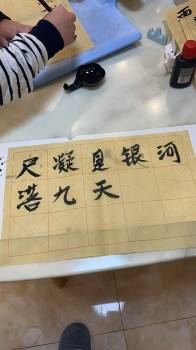 尺凝是银河
落九天